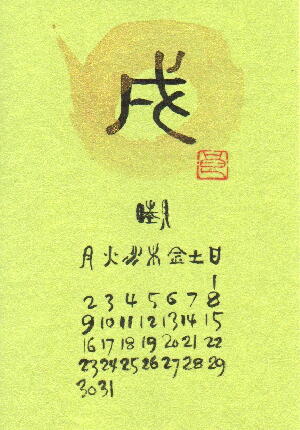 戌
睦月
月 火 水 木 金 土 日
1
2 3 4 5 6 7 8
9 10 11 12 13 14 15
16 17 18 19 20 21 22
23 24 25 26 27 28 29
30 31